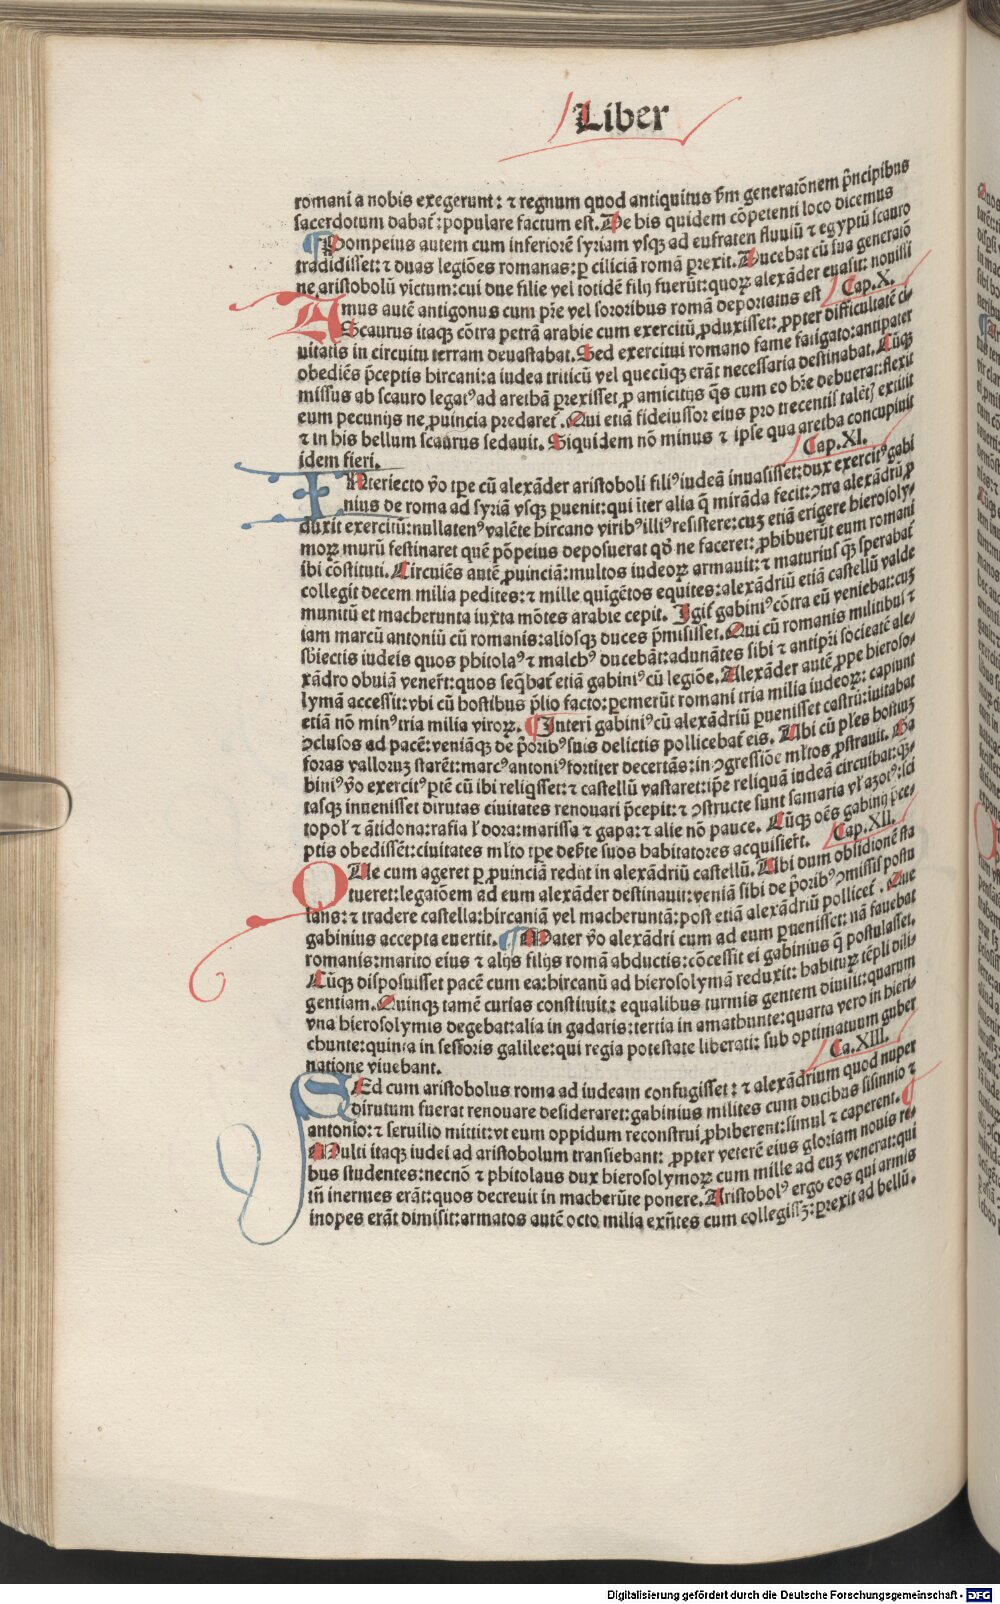 Liber
romani a nobis exegerunt: ⁊ regnum quod antiquitus ẜm generatõnem p̃ncipibus
sacerdotum dabat᷑: populare factum est. De his quidem cõpetenti loco dicemus
¶ Pompeius autem cum inferiorẽ syriam vsqꝫ ad eufraten fluuiũ ⁊ egyptũ scauro
tradidisset: ⁊ duas legiões romanas: ꝑ ciliciã romã ꝑrexit. Ducebat cũ sua generaiõ
ne aristobolũ victum: cui due filie vel totidẽ filij fuerũt: quoꝝ alexãder euasit: nouissi
mus autẽ antigonus cum pr̃e vel sororibus romã deportatus est Cap. X.
Scaurus itaqꝫ cõtra petrã arabie cum exercitũ ꝓduxisset: ꝓpter difficultatẽ ci-
uitatis in circuitu terram deuastabat. Sed exercitui romano fame fatigato: antipater
obediẽs p̃ceptis hircani: a iudea triticũ vel quecũqꝫ erãt necessaria destinabat. Cũqꝫ
missus ab scauro legatꝰ ad arethã ꝑrexisset ꝓ amicitijs q̃s cum eo hr̃e debuerat: flexit
eum pecunijs ne ꝓuincia predaret᷑. Qui etiã fideiussor eius pro trecentis talẽt exiuit
⁊ in his bellum scaurus sedauit. Siquidem nõ minus ⁊ ipse qua aretha concupiuit
idem fieri. Cap. XI.
INteriecto ṽo tꝑe cũ alexãder aristoboli filiꝰ iudeã inuasisset: dux exercitꝰ gabi
nius de roma ad syriã vsqꝫ ꝑuenit: qui iter alia q̃ mirãda fecit: ↄtra alexãdrũ ꝓ
duxit exercitũ: nullatenꝰ valẽte hircano viribꝰ illiꝰ resistere: cuꝫ etiã erigere hierosoly-
moꝝ murũ festinaret quẽ põpeius deposuerat qd̃ ne faceret: ꝓhibuerũt eum romani
ibi cõstituti. Circuiẽs autẽ ꝓuinciã: multos iudeoꝝ armauit: ⁊ maturius q̃ꝫ sperabat᷑
collegit decem milia pedites: ⁊ mille quigẽtos equites: alexãdriũ etiã castellũ valde
munitũ et macherunta iuxta mõtes arabie cepit. Igit᷑ gabiniꝰ cõtra eũ veniebat: cuꝫ
iam marcũ antoniũ cũ romanis: aliosqꝫ duces p̃misisset. Qui cũ romanis militibus ⁊
sb̃iectis iudeis quos phitolaꝰ ⁊ malchꝰ ducebãt: adunãtes sibi ⁊ antipr̃i societatẽ ale-
xãdro obuiã venert᷑: quos seq̃bat᷑ etiã gabiniꝰ cũ legiõe. Alexãder autẽ ꝓpe hieroso-
lymã accessit: vbi cũ hostibus p̃lio facto: ꝑemerũt romani tria milia iudeoꝝ: capiunt
etiã nõ minꝰ tria milia viroꝝ. ¶ Interi gabiniꝰ cũ alexãdriũ ꝑuenisset castrũ: iuitabat
ↄclusos ad pacẽ: veniãqꝫ de p̃oribꝰ suis delictis pollicebat᷑ eis. Ubi cũ pl̃es hostiuꝫ
foras valloruꝫ starẽt: marcꝰ antoniꝰ fortiter decertãs: in ↄgressiõe ml̃tos ꝓstrauit. Ga
biniꝰ ṽo exercitꝰ ꝑtẽ cũ ibi reliq̃sset: ⁊ castellũ vastaret: ip̃e reliquã iudeã circuibat: q̃ꝫ-
tasqꝫ inuenisset dirutas ciuitates renouari p̃cepit: ⁊ ↄstructe sunt samaria vł azotꝰ: sci
topoł ⁊ ãtidona: rafia ł dora: marissa ⁊ gapa: ⁊ alie nõ pauce. Cũqꝫ oẽs gabinij p̃ce-
ptis obedissẽt: ciuitates ml̃to tꝑe deñte suos habitatores acquisiert᷑. Cap. XII.
QUe cum ageret ꝑ ꝓuinciã redijt in alexãdriũ castellũ. Ubi dum obsidionẽ sta
tueret: legaiõem ad eum alexãder destinauit: veniã sibi de p̃oribꝰ ↄmissis postu
lans: ⁊ tradere castella: hircaniã vel macheruntã: post etiã alexãdriũ pollicet᷑. Que
gabinius accepta euertit. ¶ Mater ṽo alexãdri cum ad eum ꝑuenisset: nã fauebat
romanis: marito eius ⁊ alijs filijs romã abductis: cõcessit ei gabinius q̃ postulasset.
Cũqꝫ disposuisset pacẽ cum ea: hircanũ ad hierosolymã reduxit: habiturꝫ tẽpli dili-
gentiam. Quinqꝫ tamẽ curias constituit: equalibus turmis gentem diuisit: quarum
vna hierosolymis degebat: alia in gadaris: tertia in amathunte: quarta vero in hieri-
chunte: quinta in sefforis galilee: qui regia potestate liberati: sub optimatuum guber
natione viuebant. Ca. XIII.
SEd cum aristobolus roma ad iudeam confugisset: ⁊ alexãdrium quod nuper
dirutum fuerat renouare desideraret: gabinius milites cum ducibus sisinnio ⁊
antonio: ⁊ seruilio mittit: vt eum oppidum reconstrui ꝓhiberent: simul ⁊ caperent. ¶
Multi itaqꝫ iudei ad aristobolum transiebant: ꝓpter veterẽ eius gloriam nouis re-
bus studentes: necnõ ⁊ phitolaus dux hierosolymoꝝ cum mille ad euꝫ venerat: qui
tñ inermes erãt: quos decreuit in macherũte ponere. Aristobolꝰ ergo eos qui armis
inopes erãt dimisit: armatos autẽ octo milia exñtes cum collegissꝫ: ꝑrexit ad bellũ.
Digitalisierung gefördert durch die Deutsche Forschungsgemeinschaft - DFG